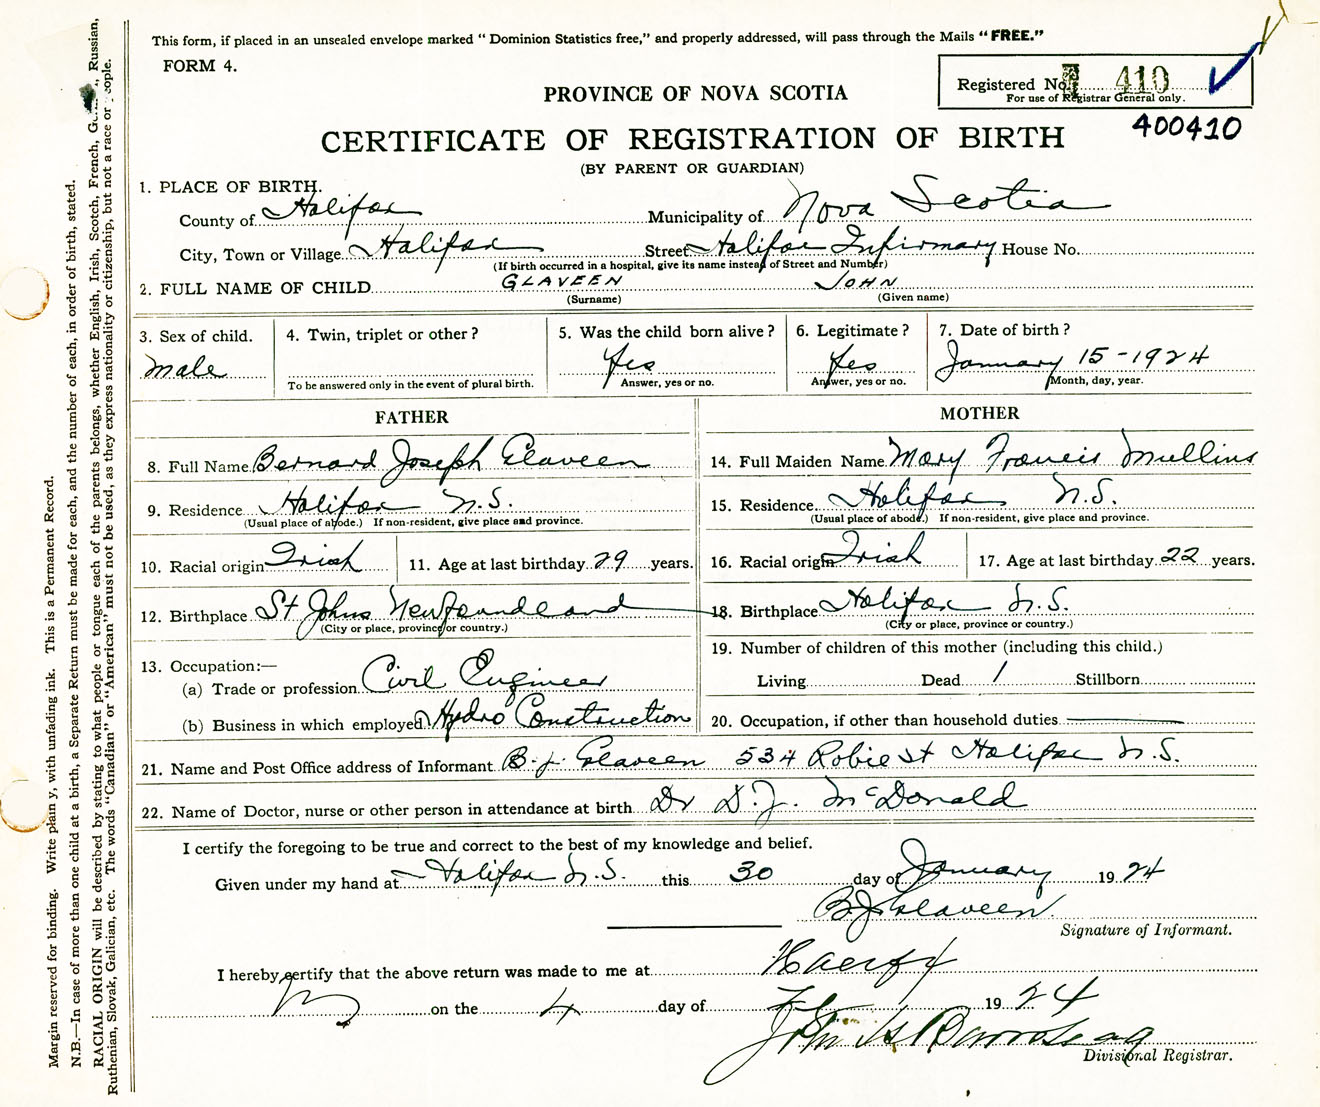 This form, if placed in an unsealed envelope marked " Dominion Statistics free," and properly addressed, will pass through the Mails "FREE."
FORM 4.
Registered No. 410
For use of Registrar General only.
400410
PROVINCE OF NOVA SCOTIA
CERTIFICATE OF REGISTRATION OF BIRTH
(BY PARENT OR GUARDIAN)
1. PLACE OF BIRTH.
County of Halifax Municipality of Nova Scotia
City, Town or Village Halifax Street Halifax Infirmary House No.
(If birth occurred in a hospital, give its name instead of Street and Number)
2. FULL NAME OF CHILD GLAVEEN JOHN
(Surname) (Given name)
3. Sex of child. 4. Twin, triplet or other? 5. Was the child born alive? 6. Legitimate? 7. Date of birth?
male Yes Yes January 15-1924
To be answered only in the event of plural birth. Answer, yes or no. Answer, yes or no. Month, day, year.
FATHER MOTHER
8. Full Name Bernard Joseph Glaveen 14. Full Maiden Name Mary Francis Mullins
9. Residence Halifax N.S. 15. Residence Halifax N.S.
(Usual place of abode.) If non-resident, give place and province. (Usual place of abode.) If non-resident, give place and province.
10. Racial origin Irish 11. Age at last birthday 29 years. 16. Racial origin Irish 17. Age at last birthday 22 years.
12. Birthplace St Johns Newfoundland 18. Birthplace Halifax N.S.
(City or place, province or country.) (City or place, province or country.)
13. Occupation:— 19. Number of children of this mother (including this child.)
(a) Trade or profession Civil Engineer Living Dead 1 Stillborn
(b) Business in which employed Hydro Construction 20. Occupation, if other than household duties
21. Name and Post Office address of Informant B.J. Glaveen 534 Robie St Halifax N.S.
22. Name of Doctor, nurse or other person in attendance at birth Dr D.J. McDonald
I certify the foregoing to be true and correct to the best of my knowledge and belief.
Given under my hand at Halifax N.S. this 30 day of January 1924
B.J. Glaveen
Signature of Informant.
I hereby certify that the above return was made to me at
on the 4 day of 1924
Divisional Registrar.
Margin reserved for binding. Write plain y, with unfading ink. This is a Permanent Record.
N.B.—In case of more than one child at a birth, a Separate Return must be made for each, and the number of each, in order of birth, stated.
RACIAL ORIGIN will be described by stating to what people or tongue each of the parents belongs, whether English, Irish, Scotch, French, Russian,
Ruthenian, Slovak, Galician, etc. The words "Canadian" or "American" must not be used, as they express nationality or citizenship, but not a race or people.